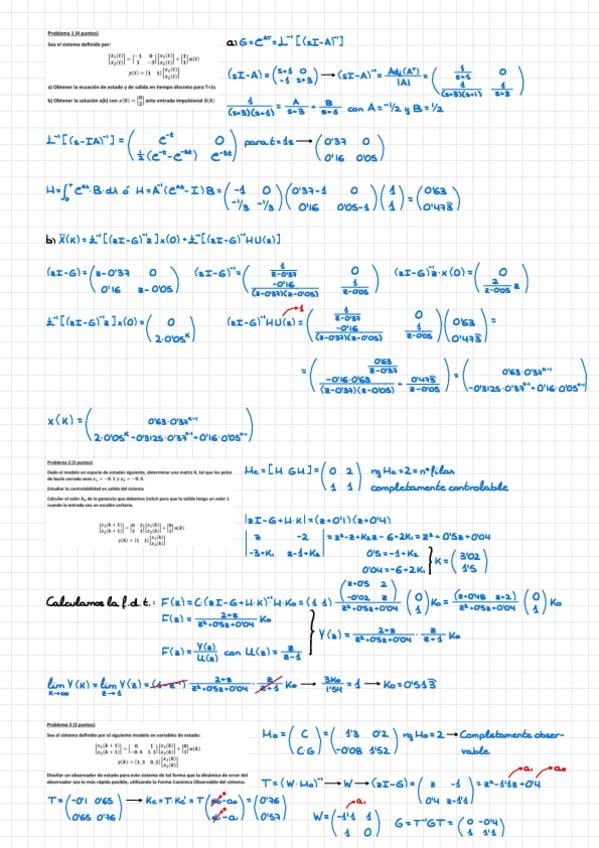 Problema 1 (4 puntos)
Sea el sistema definido por:
[ẋ₁(t) ẋ₂(t)] = [-1 0; 1 -3][x₁(t) x₂(t)] + [1; 1]u(t)
y(t) = [1 1][x₁(t) x₂(t)]
a) Obtener la ecuación de estado y de salida en tiempo discreto para T=1s
b) Obtener la solución x(k) con x(0) = [0; 2] ante entrada impulsional δ(k)
a) G = e^AT = L⁻¹[(sI-A)⁻¹]
(sI-A) = (s+1 0; -1 s+3) → (sI-A)⁻¹ = Adj(Aᵀ)/|A| = (1/(s+1) 0; 1/((s+3)(s+1)) 1/(s+3))
1/((s+3)(s+1)) = A/(s+3) + B/(s+1) con A=-1/2 y B=1/2
L⁻¹[(s-IA)⁻¹] = (e^-t 0; 1/2(e^-t - e^-3t) e^-3t) para t=1s → (0'37 0; 0'16 0'05)
H = ∫₀ e^Aλ·B·dλ ó H = A⁻¹(e^AT - I)B = (-1 0; -1/3 -1/3)(0'37-1 0; 0'16 0'05-1)(1; 1) = (0'63; 0'473)
b) X(K) = z⁻¹[(zI-G)⁻¹z]x(0) + z⁻¹[(zI-G)⁻¹HU(z)]
(zI-G) = (z-0'37 0; 0'16 z-0'05) (zI-G)⁻¹ = (1/(z-0'37) 0; -0'16/((z-0'37)(z-0'05)) 1/(z-0'05)) (zI-G)⁻¹z·x(0) = (0; 2/(z-0'05) z)
z⁻¹[(zI-G)⁻¹z]x(0) = (0; 2·0'05ᴷ) (zI-G)⁻¹HU(z) = (1/(z-0'37) 0; -0'16/((z-0'37)(z-0'05)) 1/(z-0'05))(0'63; 0'473) =
= (0'63/(z-0'37); -0'16·0'63/((z-0'37)(z-0'05)) + 0'473/(z-0'05)) = (0'63·0'37ᴷ⁻¹; -0'3125·0'37ᴷ⁻¹+0'16·0'05ᴷ⁻¹)
x(K) = (0'63·0'37ᴷ⁻¹; 2·0'05ᴷ-0'3125·0'37ᴷ⁻¹+0'16·0'05ᴷ⁻¹)
Problema 2 (3 puntos)
Dado el modelo en espacio de estados siguiente, determinar una matriz K, tal que los polos
de bucle cerrado sean z₁ = -0.1 y z₂ = -0.4.
Estudiar la controlabilidad en salida del sistema
Calcular el valor K₀ de la ganancia que debemos incluir para que la salida tenga un valor 1
cuando la entrada sea un escalón unitario.
[x₁(k+1) x₂(k+1)] = [0 2; 3 1][x₁(k) x₂(k)] + [0; 1]u(k)
y(k) = [1 1][x₁(k) x₂(k)]
Mc = [H GH] = (0 2; 1 1) rg Mc = 2 = nº filas
completamente controlable
|zI-G+H·K| = (z+0'1)(z+0'4)
|z -2; -3+K₁ z-1+K₂| = z²-z+K₂z-6+2K₁ = z²+0'5z+0'04
0'5=-1+K₂
0'04=-6+2K₁
K = (3'02; 1'5)
Calculamos la f.d.t.: F(z) = C(zI-G+H·K)⁻¹H·K₀ = (1 1) (z+0'5 2; -0'02 z)/(z²+0'5z+0'04) (0; 1)K₀ = (z+0'48 z+2)/(z²+0'5z+0'04) (0; 1) K₀
F(z) = (2+z)/(z²+0'5z+0'04) K₀
F(z) = Y(z)/U(z) con U(z) = z/(z-1)
Y(z) = (2+z)/(z²+0'5z+0'04) · z/(z-1) K₀
lim K→∞ Y(K) = lim z→1 Y(z) = (1-z⁻¹) (2+z)/(z²+0'5z+0'04) · z/(z-1) K₀ → 3K₀/1'54 = 1 → K₀=0'513
Problema 3 (3 puntos)
Sea el sistema definido por el siguiente modelo en variables de estado:
[x₁(k+1) x₂(k+1)] = [0 1; -0.4 1.1][x₁(k) x₂(k)] + [0; 1]u(k)
y(k) = [1.3 0.2][x₁(k) x₂(k)]
Diseñar un observador de estado para este sistema de tal forma que la dinámica de error del
observador sea lo más rápido posible, utilizando la Forma Canónica Observable del sistema.
Mo = (C; C·G) = (1'3 0'2; -0'08 1'52) rg Mo = 2 → Completamente obser-
vable
T = (W·Mo)⁻¹ → W → (zI-G) = (z -1; 0'4 z-1'1) = z²-1'1z+0'4
a₁ a₀
T = (-0'1 0'65; 0'65 0'76) → Ke = T·Ke' = T(α₀-a₀; α₁-a₁) = (0'76; 0'57)
W = (-1'1 1; 1 0) G = T⁻¹GT = (0 -0'4; 1 1'1)